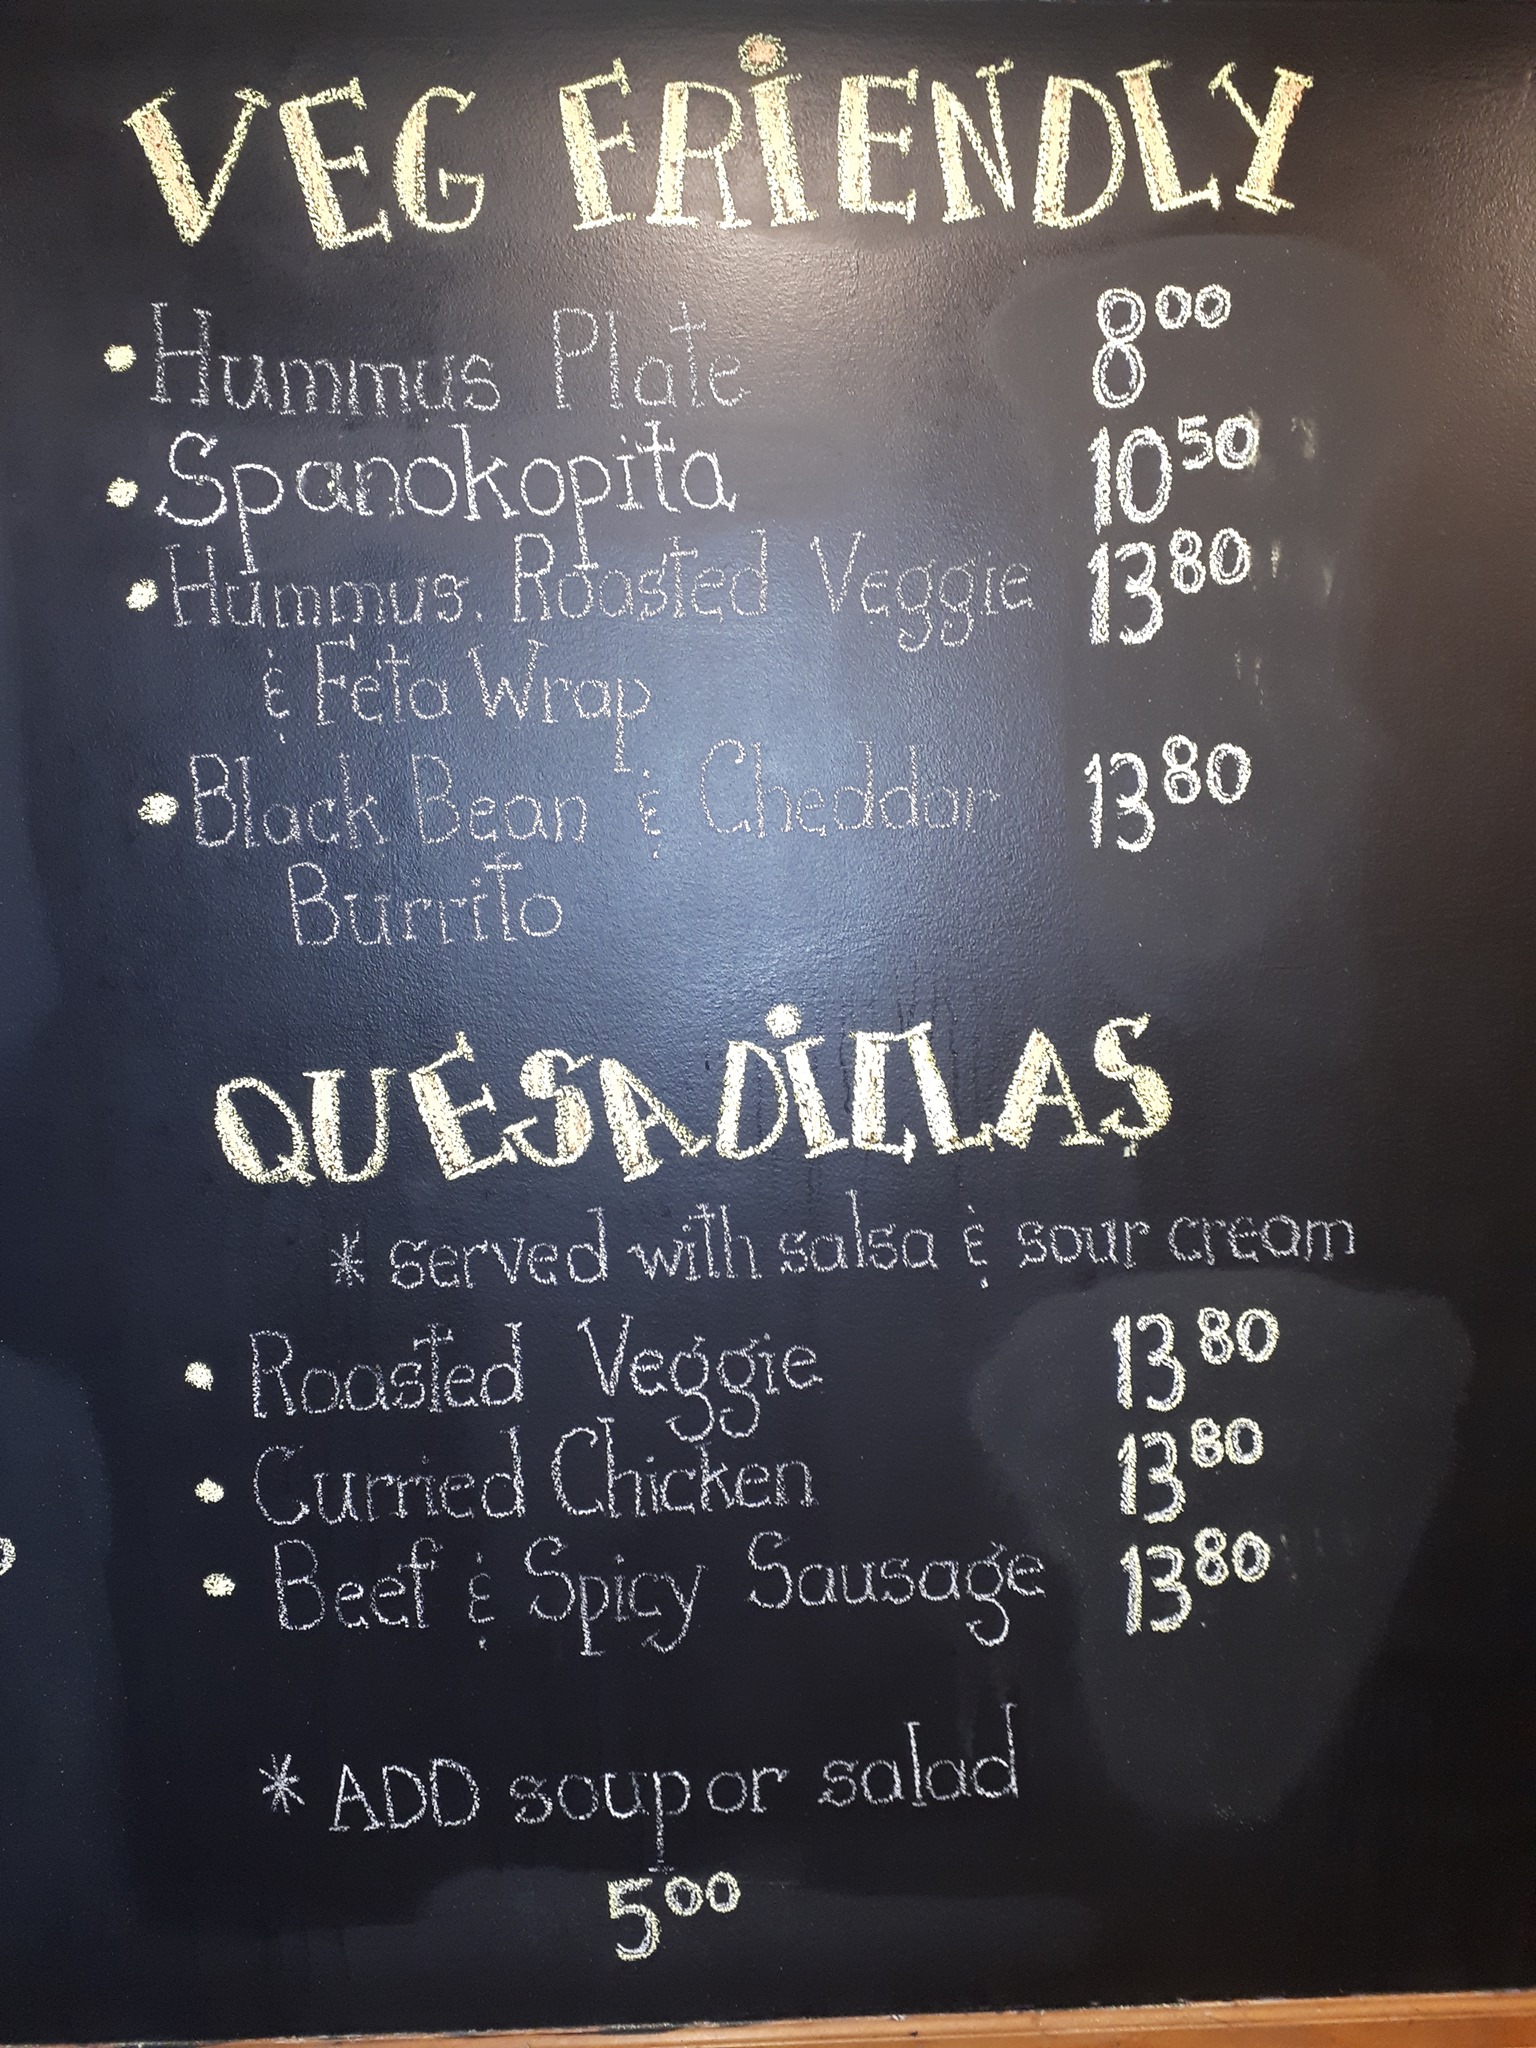 VEG FRIENDLY
• Hummus Plate 8.00
• Spanokopita 10.50
• Hummus. Roasted Veggie 13.80
& Feta Wrap
• Black Bean & Cheddar 13.80
Burrito
QUESADILLAS
* served with salsa & sour cream
• Roasted Veggie 13.80
• Curried Chicken 13.80
• Beef & Spicy Sausage 13.80
* ADD soup or salad
5.00